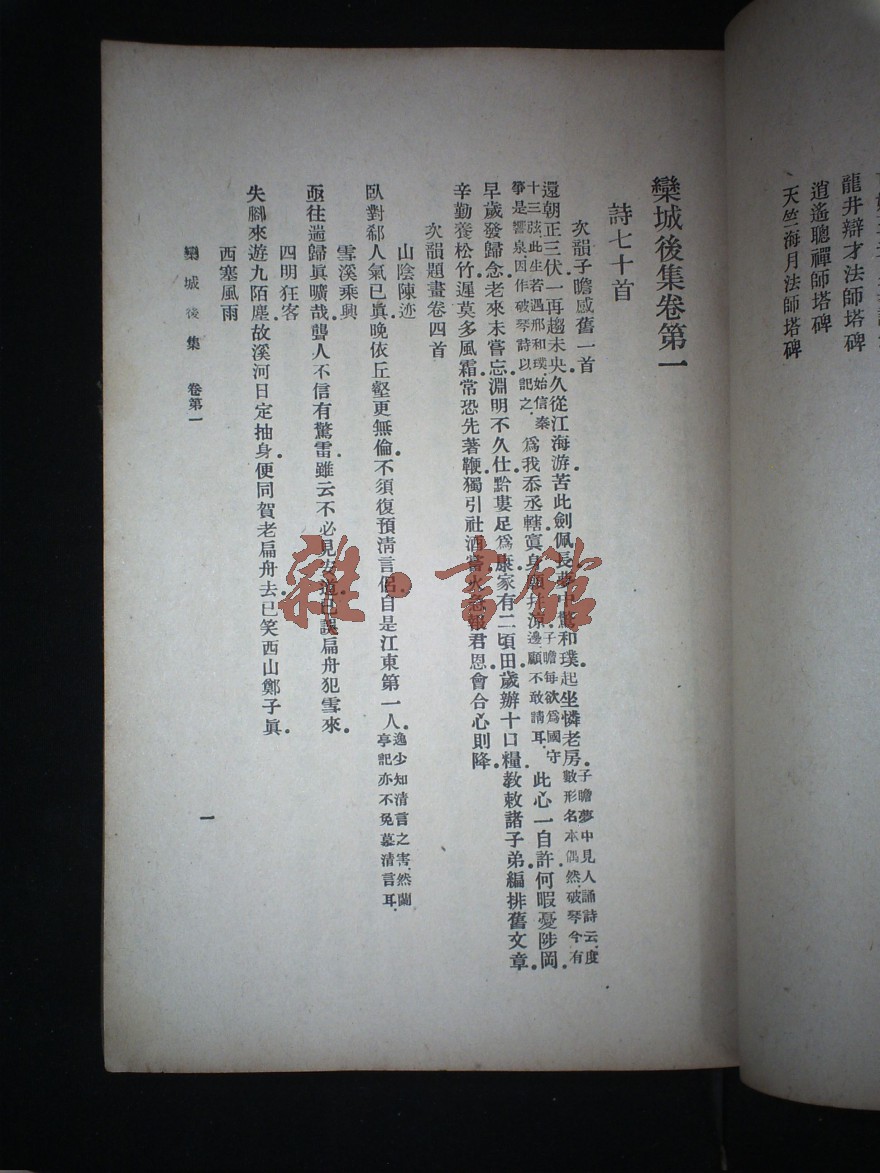 龍井辯才法師塔碑
逍遙聰禪師塔碑
天竺海月法師塔碑
欒城後集卷第一
詩七十首
次韻子瞻感舊一首
還朝正三伏一再趨未央久從江海游苦此劍佩長夢中驚和璞起坐憐老房子瞻夢中見人誦詩云度數形名本偶然破琴今有
十三弦此生若遇邢和璞始信秦箏是響泉因作破琴詩以記之爲我忝丞轄寘身願並涼子瞻每欲爲國守邊顧不敢請耳此心一自許何暇憂陟岡
早歲發歸念老來未嘗忘淵明不久仕黔婁足爲康家有二頃田歲辦十口糧教敕諸子弟編排舊文章
辛勤養松竹遲莫多風霜常恐先著鞭獨引社酒嘗火急報君恩會合心則降
次韻題畫卷四首
山陰陳迹
臥對郗人氣已真晚依丘壑更無倫不須復預淸言侶自是江東第一人逸少知清言之害然蘭亭記亦不免慕清言耳
雪溪乘興
亟往遄歸眞曠哉聾人不信有驚雷雖云不必見安道已誤扁舟犯雪來
四明狂客
失腳來遊九陌塵故溪河日定抽身便同賀老扁舟去已笑西山鄭子眞
西塞風雨
欒城後集 卷第一
一
雜·書館